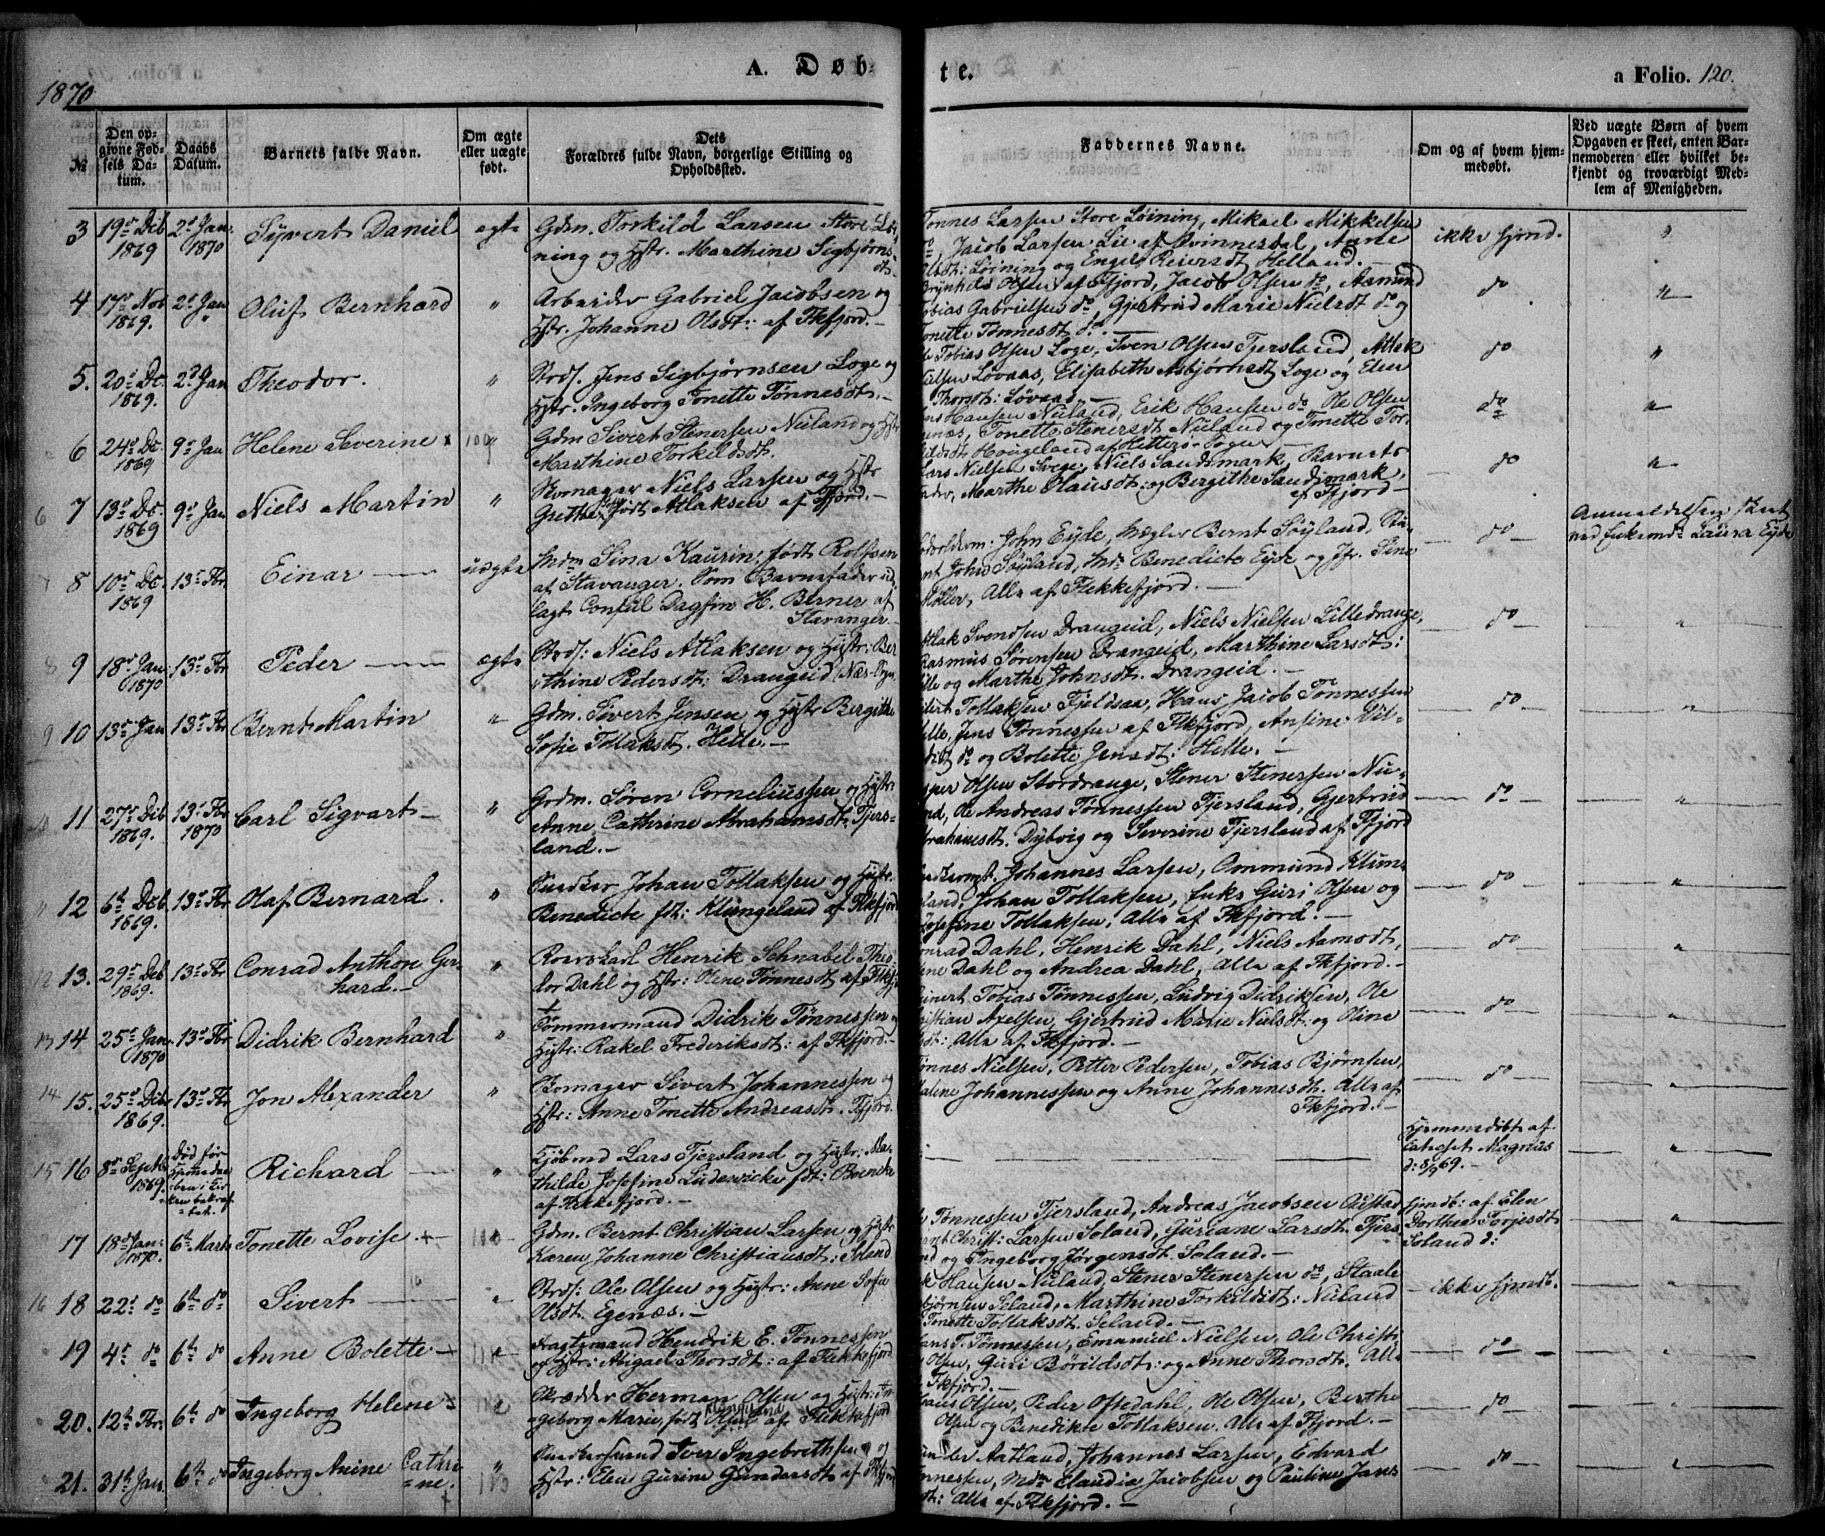 1870
A. Døb-
te.
a Folio. 120.
№
Den op-
givne Fød-
sels Da-
tum.
Daabs
Datum.
Barnets fulde Navn.
Om ægte
eller uægte
født.
Dets
Forældres fulde Navn, borgerlige Stilling og
Opholdssted.
Faddernes Navne.
Om og af hvem hjem-
medøbt.
Ved uægte Børn af hvem
Opgaven er skeet, enten Bar-
nemoderen eller hvilket be-
kjendt og troværdigt Med-
lem af Menigheden.
3 19de Dcb 1869 2d Jan. 1870 Syvert Daniel ægte
Gdm. Torkild Larsen Store Løi-
ning og Hstr. Marthine Sigbjørns-
dt.
Tonnes Larsen Store Løining, Mikael Mikkelsen
do, Jacob Larsen Lie af Qvinnesdal, Anne
Olsdt: Løining og Engel Reiersdt Helland.
ikke hjmd.
4 17de Nob 1869. 2d Jan Oluf Bernhard "
Arbeider Gabriel Jacobsen og
Hstr. Johanne Olsdt: af Fkfjord.
Brynhild Olsen af Fjord, Jacob Olsen do, Aamund
Tobias Gabrielsen do, Gjertrud Marie Nielsdt do og
Tonette Tønnesdt do.
do
5. 20de Dc. 1869. 2d Jan Theodor. "
Strds. Jens Sigbjørnsen Loge og
Hstr. Ingeborg Tonette Tønnesdt.
Ole Tobias Olsen Loge, Sven Olsen Tjersland, Atlak
Nielsen Løvaas, Elisabeth Asbjørnsdt Loge og Elen
Thorsdt: Løvaas
do
6 24de Dc. 1869 9de Jan Helene Severine x 109
Gdm. Sivert Stenersen Nuland og Hstr
Marthine Torkildsdt.
Hans Hansen Nuland, Erik Hansen do Ole Olsen
Egenæs, Tonette Stenersdt Nuland og Tonette Tor-
kildsdt Hougeland af Hitterø Sogn
do
7 13de Dc. 1869 9de Jan Niels Martin "
Skomager Niels Larsen og Hstr
Grethe født Atlaksen af Fjord.
Lars Nielsen Svege, Niels Sandsmark, Barnets
Fader, Marthe Olausdt: og Bergithe Sandsmark,
af Fjord
do
8 10de Dc. 1869 13de Fbr Einar uægte
Mdm Sina Kaurin født Rolfsen
af Stavanger. Som Barnefader ud-
lagt Consul Dagfin H. Berner af
Stavanger
John Eyde, Mægler Bernt Søyland,
John Søyland, Benedicte Eyde og Jfr. Sine
Møller, Alle af Flekkefjord.
do
Anmeldelsen skeet
ved Enkemd Laura Eyde
9 18de Jan 1870 13de Fbr Peder ægte
Strds: Niels Atlaksen og Hustr: Ber-
thine Pedersdt: Drangeid (Næs-Sogn
Atlak Svendsen Drangeid, Niels Nielsen Lilledrange,
Rasmus Sørensen Drangeid, Marthine Larsdt:
og Marthe Johnsdt. Drangeid.
do
10 13de Jan 13de Fbr Bernt Martin "
Gdm. Sivert Jensen og Hustr Bergitte
Sofie Tollaksdt. Helle.
Tollaksen Fjeldsaa, Hans Jacob Tønnessen
Helle, Jens Tønnessen af Fkfjord, Ansine
do og Bolette Jensdt: Helle.
do
11 27de Dcb 1869. 13de Fbr 1870 Carl Sigvart "
Grdm. Søren Corneliussen og Hustr
Anne Cathrine Abrahamsdt: Tjers-
land.
Olsen Stordrange, Stener Stenersen Nu-
land, Ole Andreas Tønnessen Tjersland, Gjertrud
Abrahamsdt. Dybvig og Severine Tjersland af Fjord
do
12 6te Dcb 1869. 13de Fbr Olaf Bernard. "
Snedker Johan Tollaksen og Hustr
Benedicte fdt: Klungeland af Fkfjord
Johannes Larsen, Ommund Klun-
geland, Johan Tollaksen, Enke Guri Olsen og
Josefine Tollaksen, Alle af Fkfjord.
do
13. 29de Dcb 1869. 13de Fbr Conrad Anthon Ger-
hard. "
Roerskarl Henrik Schnabel Theo-
dor Dahl og Hstr: Olene Tønnesdt af Fkfj
Conrad Dahl, Henrik Dahl, Niels Aamodt,
Dahl og Andrea Dahl, Alle af Fkfjord.
do
14 25de Jan. 1870 13de Fbr Didrik Bernhard "
Tømmermand Didrik Tønnessen og
Hustr: Rakel Frederiksdt: af Fkfjord.
Reinert Tobias Tønnessen, Ludvig Didriksen, Ole
Christian Axelsen, Gjertrud Marie Nielsdt: og Oline
Alle af Fkfjord.
do
15. 25de Dcb 1869. 13de Fbr Jon Alexander "
Skomager Sivert Johannessen og
Hstr: Anne Tonette Andreasdt. Fjord.
Tønnes Nielsen, Petter Pedersen, Tobias Bjørnsen,
Malene Johannessen og Anne Johannesdt. Alle af
Fkfjord.
do
16 8de Septb 1869. Død før
Hjemmedaa-
ben i Kir-
ken bekræf-
tet. Richard "
Kjøbmd Lars Tjersland og Hustr: Ma-
thilde Josefine Ludewicke fdt: Boencke
af Flekkefjord.
Hjemmedøbt af
Catechet Magnus
d: 8/9 69.
17 18de Jan. 1870. 6te Marts Tonette Lovise + 110
Gdm. Bernt Christian Larsen og Hstr
Karen Johanne Christiansdt: Seland
Tønnessen Tjersland, Andreas Jacobsen Austad
Bernt Christ: Larsen Seland, Guriane Larsdt. Tjers-
land og Ingeborg Jørgensdt. Seland.
Hjmdt: af Elen
Dorthea Torjesdt
Seland d:
18 22de do 6te do Sivert "
Strds: Ole Olsen og Hustr: Anne Sofie
Olsdt. Egenæs.
Hansen Nuland, Stener Stenersen do, Staale
Asbjørnsen Seland, Marthine Torkildsdt: Nuland
Tonette Tollaksdt. Seland.
ikke hjmdt.
19 4de do 6te do Anne Bolette 111
Fragtemand Hendrik E. Tønnessen
og Hstr: Abigael Thorsdt: af Flekkefjord
Hans T. Tønnessen, Emanuel Nielsen, Ole Christi-
Olsen, Guri Børildsdt: og Anne Thorsdt. Alle
Fkfjord.
do
20. 12te Fbr. 6te do Ingeborg Helene 112
Skrædder Herman Olsen og Hustr: In-
geborg Marie, født Olsen af Flekkefjord
Claus Olsen, Peder Oftedahl, Ole Olsen, Berthe
Olsen og Benedikte Tollaksen. Alle af Fjord.
do
21. 31te Jan. 6te do Ingeborg Anine Cathri-
ne. + 113
Iver Ingebrethsen og
Hstr: Elen Gurine Gundersdt af Fkfjord
Aatland, Johannes Larsen, Edvard
Tønnessen, Mdm Claudia Jacobsen og Pauline Jans-
dt: Alle af Fkfjord.
do